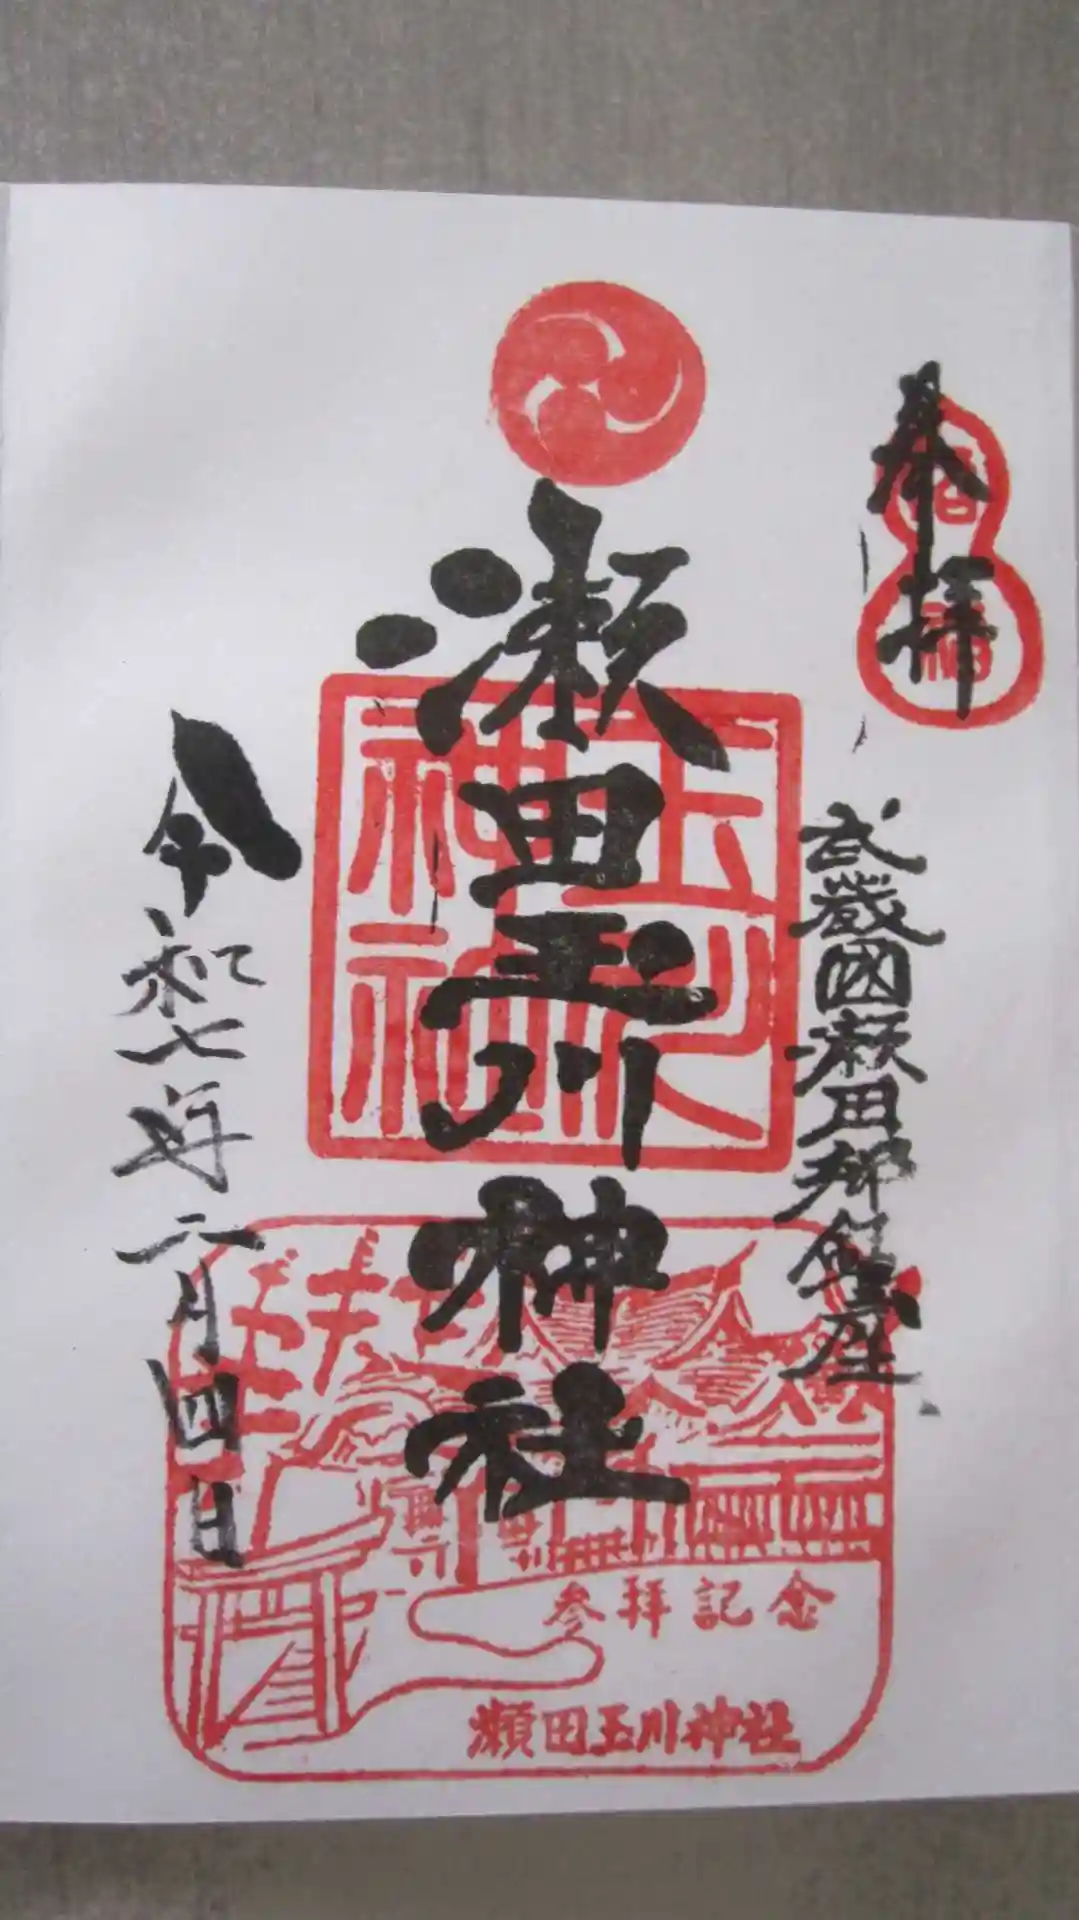 奉拝
招福
武蔵國瀬田郷鎮座
瀬田玉川神社
玉川神社
令和七年二月四日
参拝記念
瀬田玉川神社